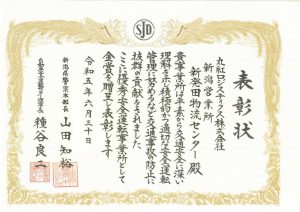 SJD
表彰状
丸紅ロジスティクス株式会社
新潟営業所
新発田物流センター殿
貴事業所は平素から交通安全に深い
理解を示され積極的かつ適切な安全運転
管理に努めるなど交通事故の防止に
抜群の貢献をされました
ここに優秀安全運転事業所として
金賞を贈呈し表彰します
令和五年六月三十日
新潟県警察本部長
山田知裕
自動車安全運転センター理事長
種谷良二